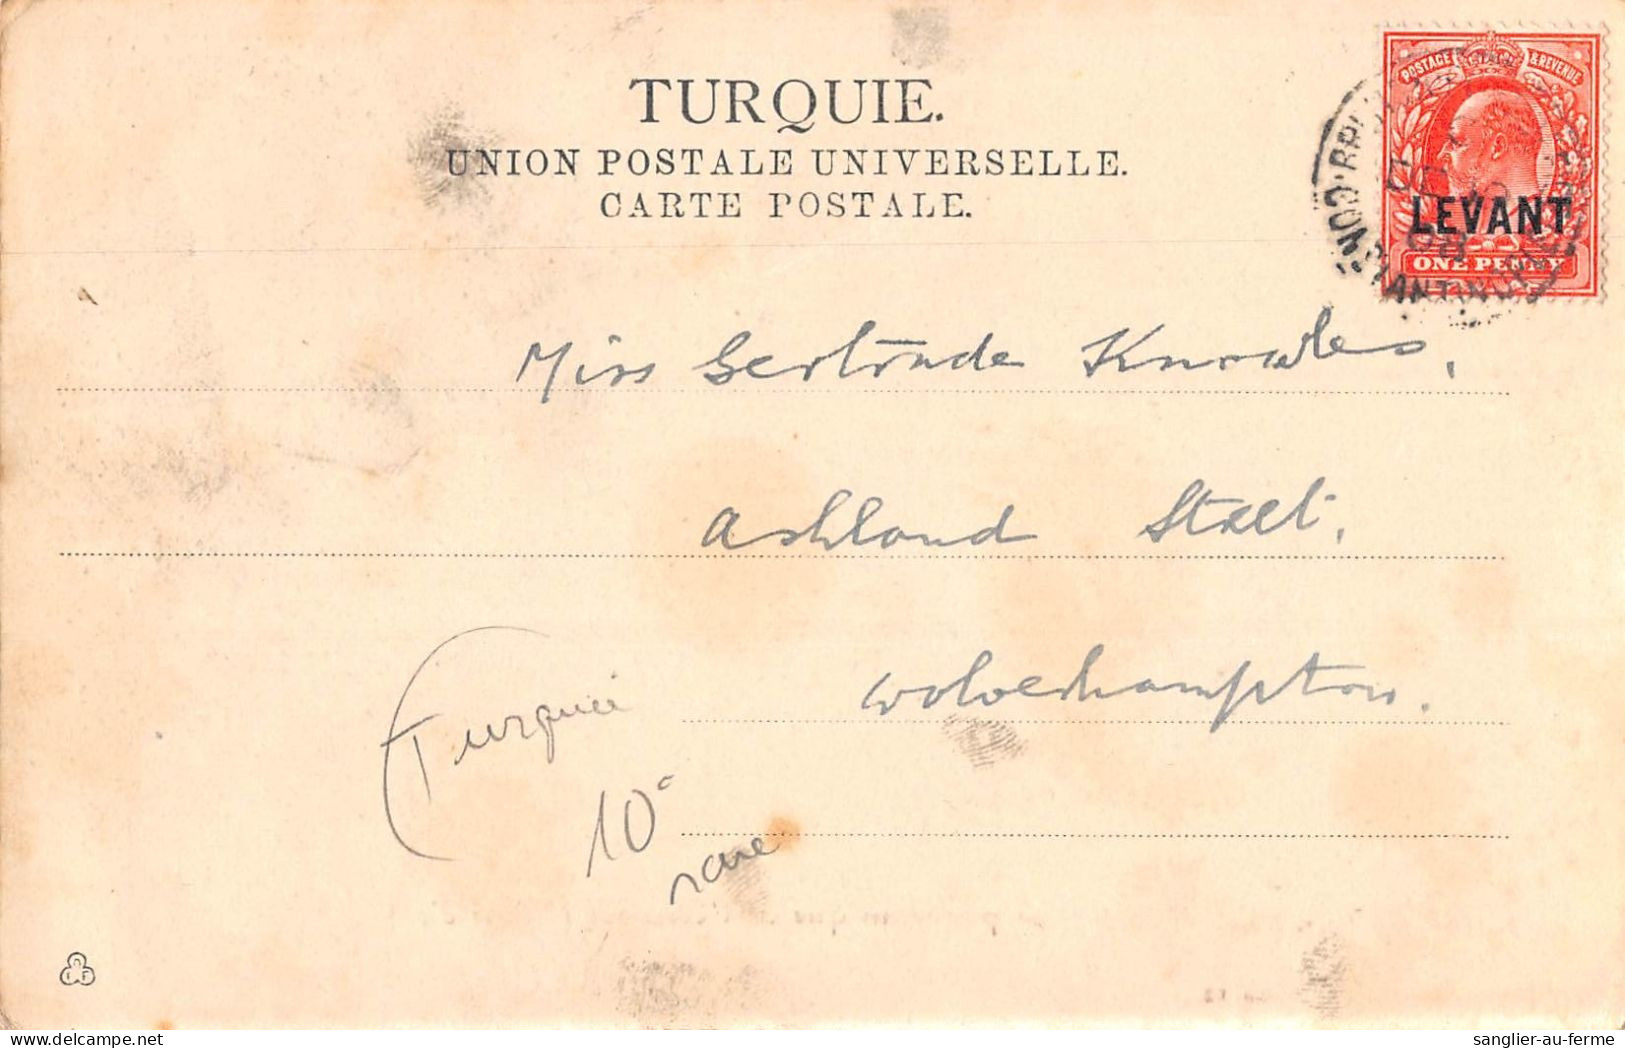 TURQUIE.
UNION POSTALE UNIVERSELLE.
CARTE POSTALE.
POSTAGE & REVENUE
LEVANT
ONE PENNY
Miss Gertrude Knowles.
Ashland Street.
Wolverhampton.
Turquie
10
rare
sanglier-au-ferme